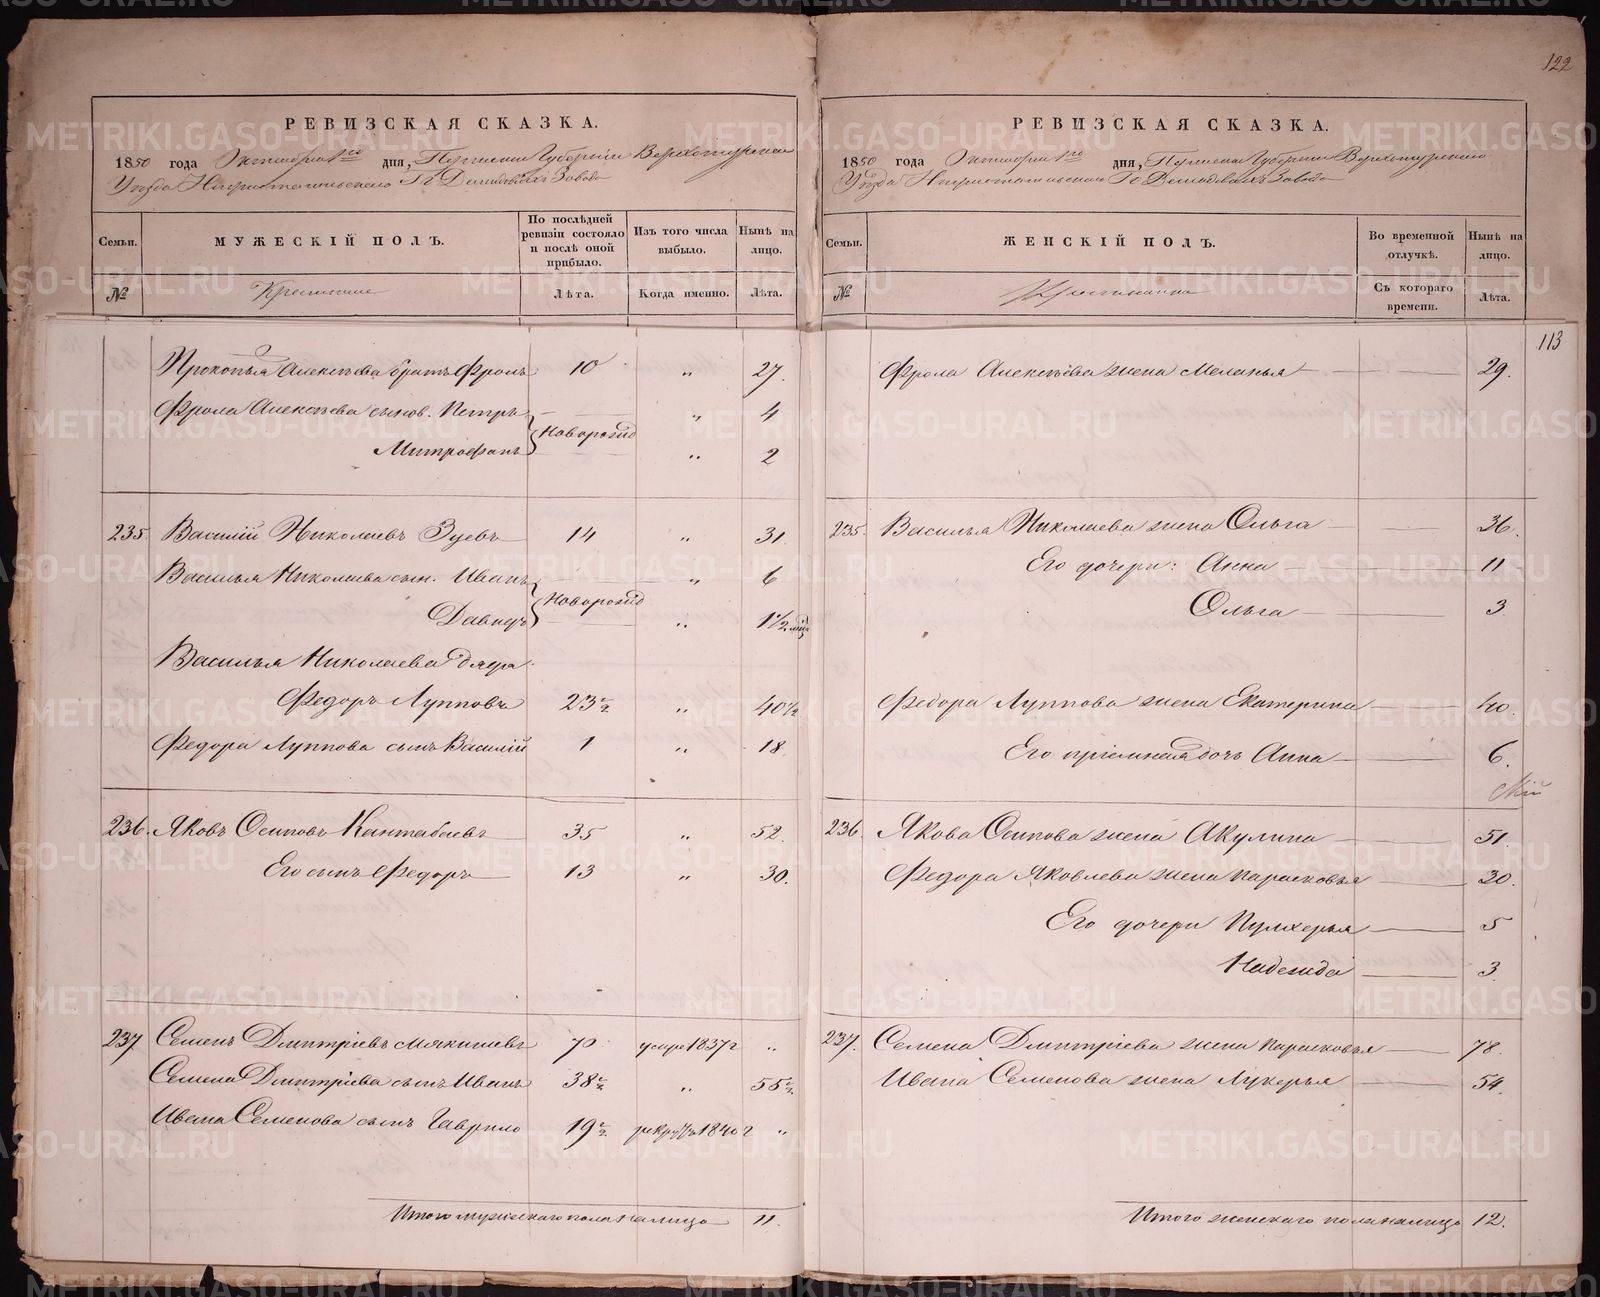 122
РЕВИЗСКАЯ СКАЗКА.
1850 года Октября 1го дня, Пермской Губернии Верхотурского
Уезда Гг Демидовых Завода
Семьи.
МУЖЕСКІЙ ПОЛЪ.
По послѣдней ревизіи состояло и послѣ оной прибыло.
Изъ того числа выбыло.
Нынѣ на лицо.
№
Крестьяне
Лѣта.
Когда именно.
Лѣта.
Прокопья Алексѣева братъ Фролъ 10 " 27.
Фрола Алексѣева сынов. Петръ " 4
Новорожд
Митрофанъ " 2
235 Василій Николаевъ Зуевъ 14 " 31.
Василья Николаева сын. Иванъ " 6
Новорожд
Давидъ " 1 1/2 мѣс
Василья Николаева дядя
Федоръ Лупповъ 23 1/2 " 40 1/2
Федора Луппова сынъ Василій 1 " 18.
236. Яковъ Осиповъ Кантабаевъ 35 " 52.
Его сынъ Федоръ 13 " 30.
237 Семенъ Дмитріевъ Мякишевъ 70 умре 1837 г "
Семена Дмитріева сынъ Иванъ 38 1/2 " 55 1/2.
Ивана Семенова сынъ Гаврило 19 1/2 1840 г "
Итого мужескаго пола на лицо 11.
РЕВИЗСКАЯ СКАЗКА.
1850 года Октября 1го дня, Пермской Губернии Верхотурского
Уезда Гг Демидовых Завода
Семьи.
ЖЕНСКІЙ ПОЛЪ.
Во временной отлучкѣ.
Нынѣ на лицо.
№
Крестьянки
Съ котораго времени.
Лѣта.
113
Фрола Алексѣева жена Меланья 29.
235. Василья Николаева жена Ольга 36.
Его дочери: Анна 11
Ольга 3
Федора Луппова жена Екатерина 40.
Его пріемная дочь Анна 6.
236. Якова Осипова жена Акулина 51.
Федора Яковлева жена Парасковья 30.
Его дочери Пулхерья 5
Надежда 3
237. Семена Дмитріева жена Парасковья 78.
Ивана Семенова жена Лукерья 54.
Итого женскаго пола на лицо 12.
METRIKI.GASO-URAL.RU